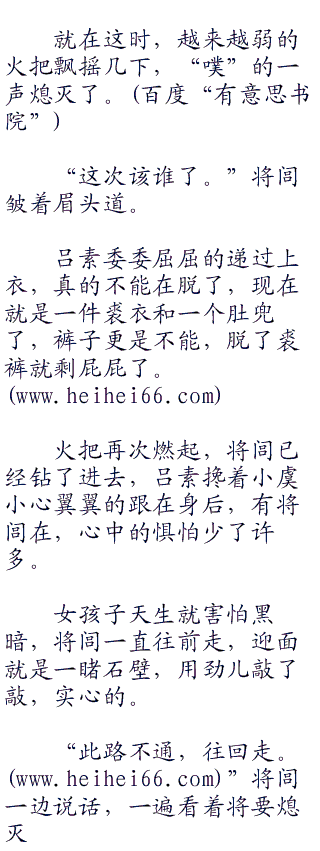 就在这时，越来越弱的
火把飘摇几下，“噗”的一
声熄灭了。(百度“有意思书
院”)
“这次该谁了。”将闾
皱着眉头道。
吕素委委屈屈的递过上
衣，真的不能在脱了，现在
就是一件亵衣和一个肚兜
了，裤子更是不能，脱了亵
裤就剩屁屁了。
(www.heihei66.com)
火把再次燃起，将闾已
经钻了进去，吕素搀着小虞
小心翼翼的跟在身后，有将
闾在，心中的惧怕少了许
多。
女孩子天生就害怕黑
暗，将闾一直往前走，迎面
就是一睹石壁，用劲儿敲了
敲，实心的。
“此路不通，往回走。
(www.heihei66.com)”将闾
一边说话，一遍看着将要熄
灭